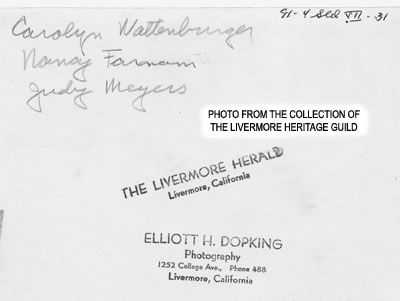 91-4 Sld VII - 31
Carolyn Wattenburger
Nancy Farnam
Judy Meyers
PHOTO FROM THE COLLECTION OF
THE LIVERMORE HERITAGE GUILD
THE LIVERMORE HERALD
Livermore, California
ELLIOTT H. DOPKING
Photography
1252 College Ave., Phone 488
Livermore, California